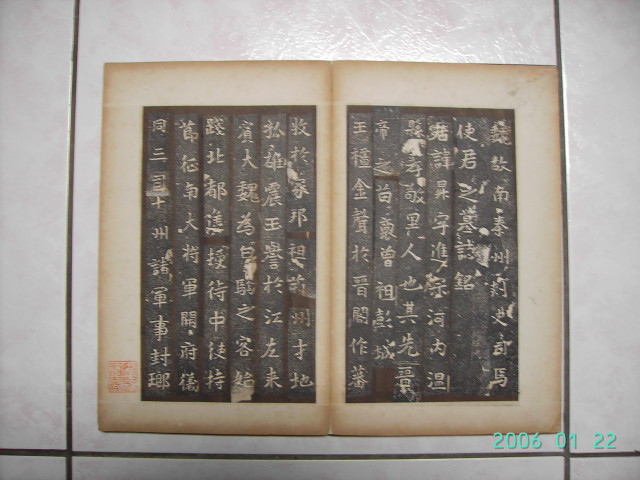 魏故南秦州刺史司馬
使君之墓誌銘
君諱昇字進宗河内温
縣孝敬里人也其先晋
帝之苗裔曾祖彭城
王權金聲於晋閣作蕃
牧於家邦祖荊州才地
孤雄震玉譽於江左来
賓大魏為白駒之客始
踐北都進授侍中使持
節征南大將軍開府儀
同三司十州諸軍事封瑯
2006 01 22